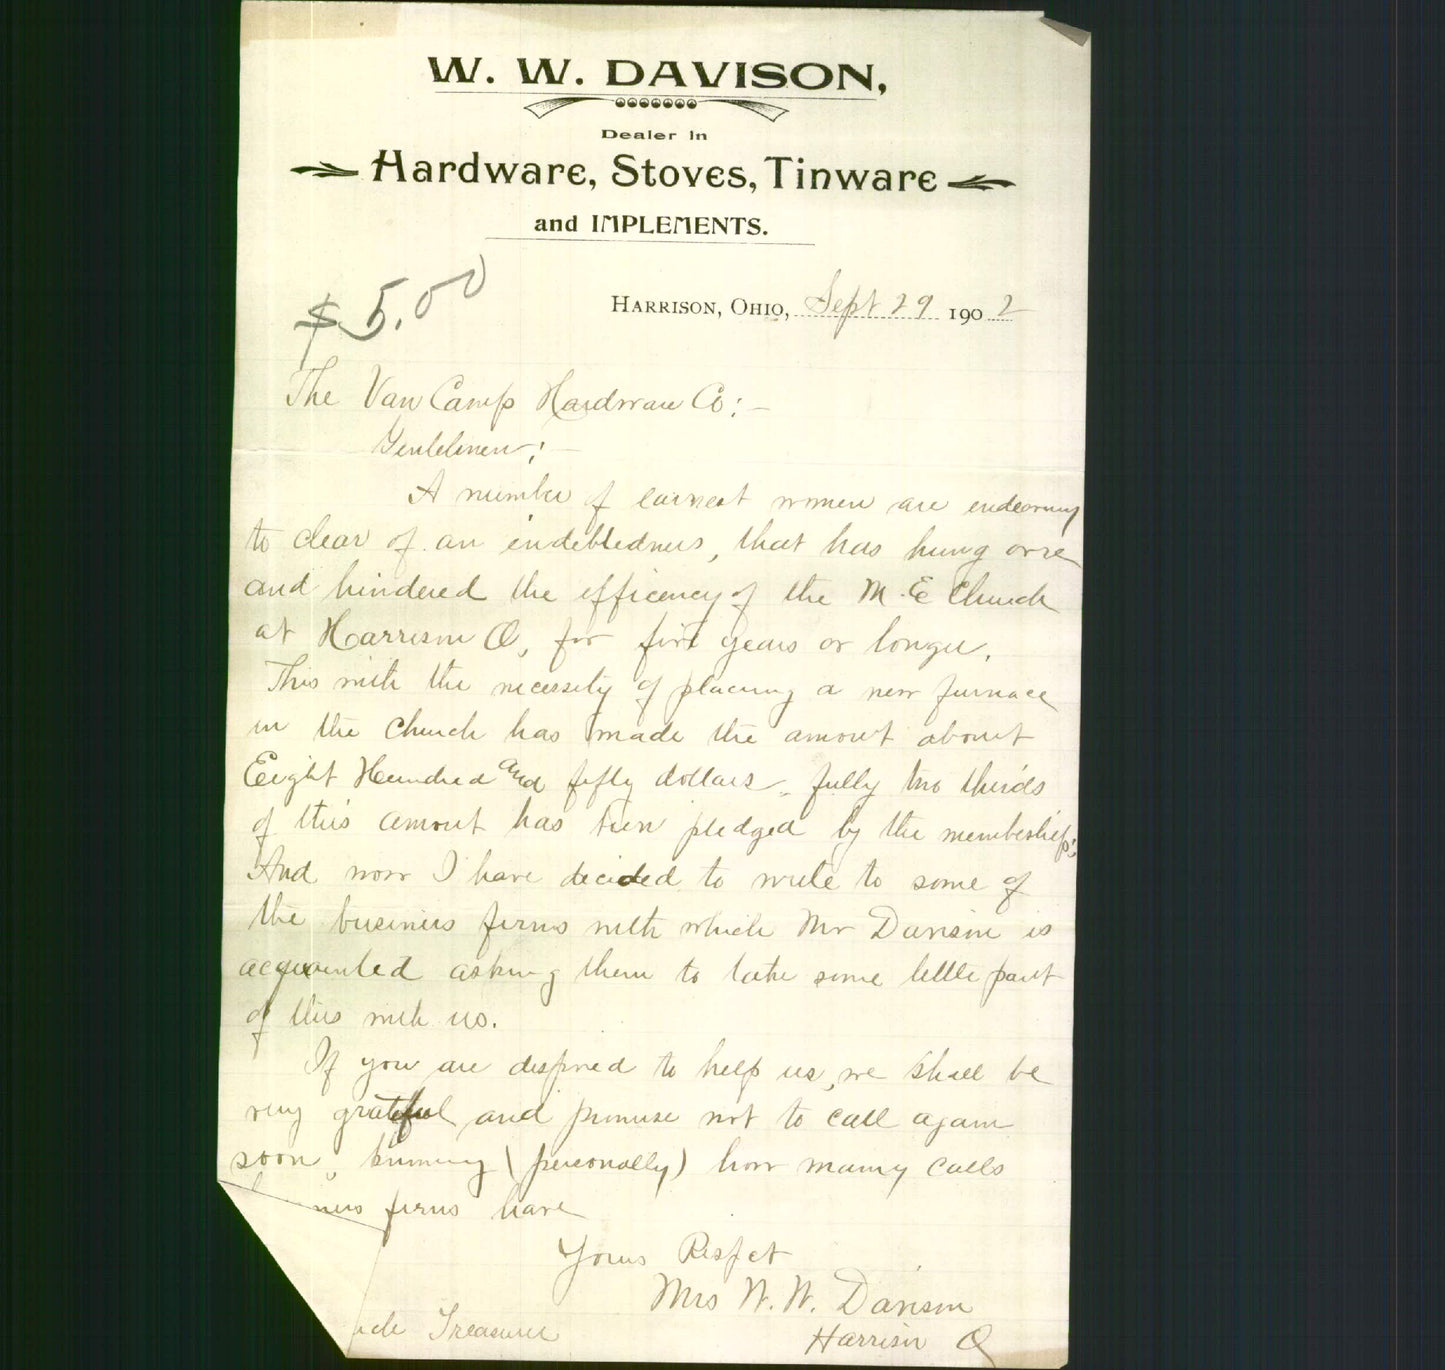 W. W. DAVISON,
Dealer in
Hardware, Stoves, Tinware
and IMPLEMENTS.
$5.00
HARRISON, OHIO, Sept 29 1902
The Van Camp Hardware Co:-
Gentlemen;-
A number of earnest women are
to clear of an indebtedness, that has hung over
and hindered the efficency of the M.E Church
at Harrison O, for five years or longer.
This with the necessity of placing a new furnace
in the Church has made the amout about
Eeight Hundred and fifty dollars. fully two thirds
of this amout has been pledged by the membership;
And now I have decided to write to some of
the business firms with which Mr Davison is
acquainted asking them to take some little part
of this with us.
If you are disposed to help us, we shall be
very grateful and promise not to call again
soon, knowing (personally) how many calls
ness firms have
Yours Respet
Mrs W. W. Davison
Harrison O
Treasurer